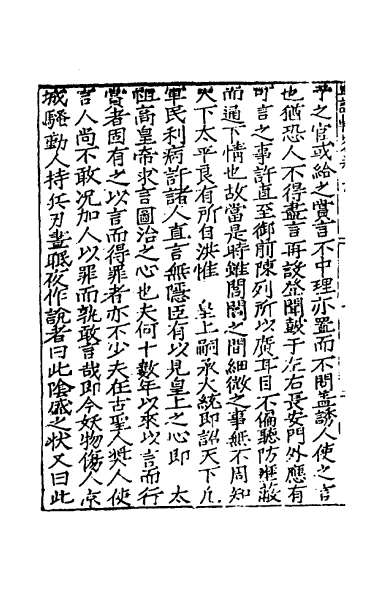 乎之官或給之賞言不中理亦置而不問盖誘人使之言
也猶恐人不得盡言再設登聞鼓于左右長安門外應有
可言之事許直至御前陳列所以廣耳目不偏聽防壅蔽
而通下情也故當是時雖閭閻之間細微之事無不周知
天下太平良有所自洪惟 皇上嗣承大統即詔天下凡
軍民利病許諸人直言無隱臣有以見皇上之心即 太
祖高皇帝求言圖治之心也夫何十數年以來以言而行
賞者固有之以言而得罪者亦不少夫在古聖人奬人使
言人尚不敢况加人以罪而孰敢言哉即今妖物傷人京
城騷動人持兵刃晝眠夜作說者曰此陰盛之状又曰此